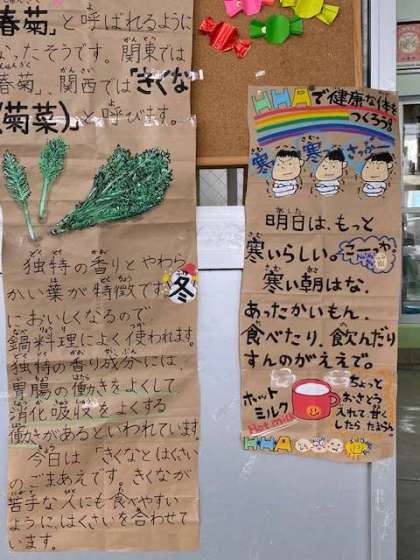 春菊』と呼ばれるように
なったそうです。関東では
春菊』、関西では『きくな
(菊菜)』と呼びます。
独特の香りとやわら
かい葉が特徴です。冬
においしくなるので、
鍋料理によく使われます。
独特の香り成分には、
胃腸の働きをよくして
消化吸収をよくする
働きがあるといわれています。
今日は、『きくなとはくさい
のごまあえ』です。きくなが
苦手な人にも食べやすい
ようにはくさいを合わせて
います。
で健康な体を
つくろう
寒い
寒い
さっかー
明日は、もっと
寒いらしい。
寒い朝はな、
あったかいもん、
食べたり、飲んだり
すんのがええで。
ホット
ミルク
Hot milk
ちょっと
おさとう
入れて甘く
したらたまらん